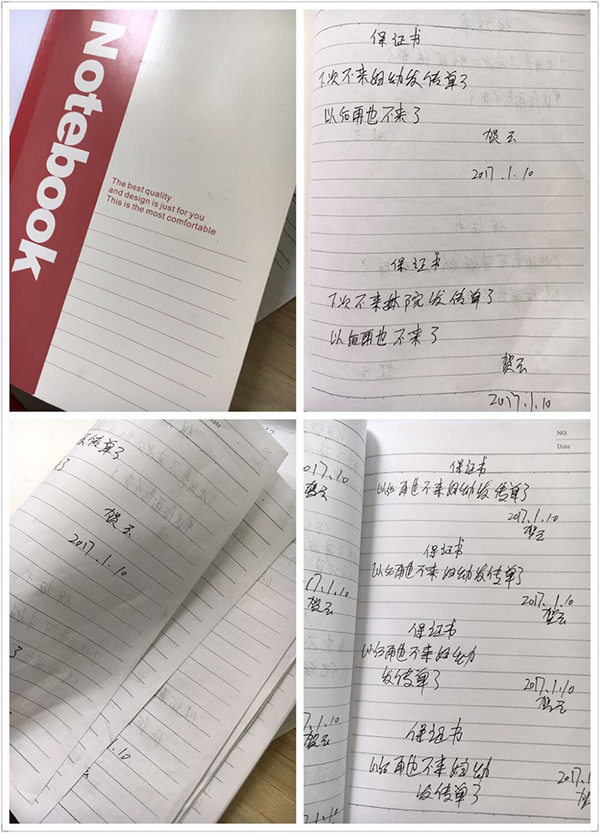 Notebook
The best quality
and design is just for you
This is the most comfortable
保证书
下次不来妇幼发传单了
以后再也不来了
贺云
2017.1.10
保证书
下次不来林院发传单了
以后再也不来了
贺云
2017.1.10
发传单了
贺云
2017.1.10
.10
NO.
Date
保证书
以后再也不来妇幼发传单了
2017.1.10
贺云
保证书
以后再也不来妇幼发传单了
2017.1.10
贺云
保证书
以后再也不来妇幼
发传单了
2017.1.10
贺云
保证书
以后再也不来妇幼
发传单了
2017.1
017.1.10
贺云
17.1.10
贺云
7.1.10
贺云